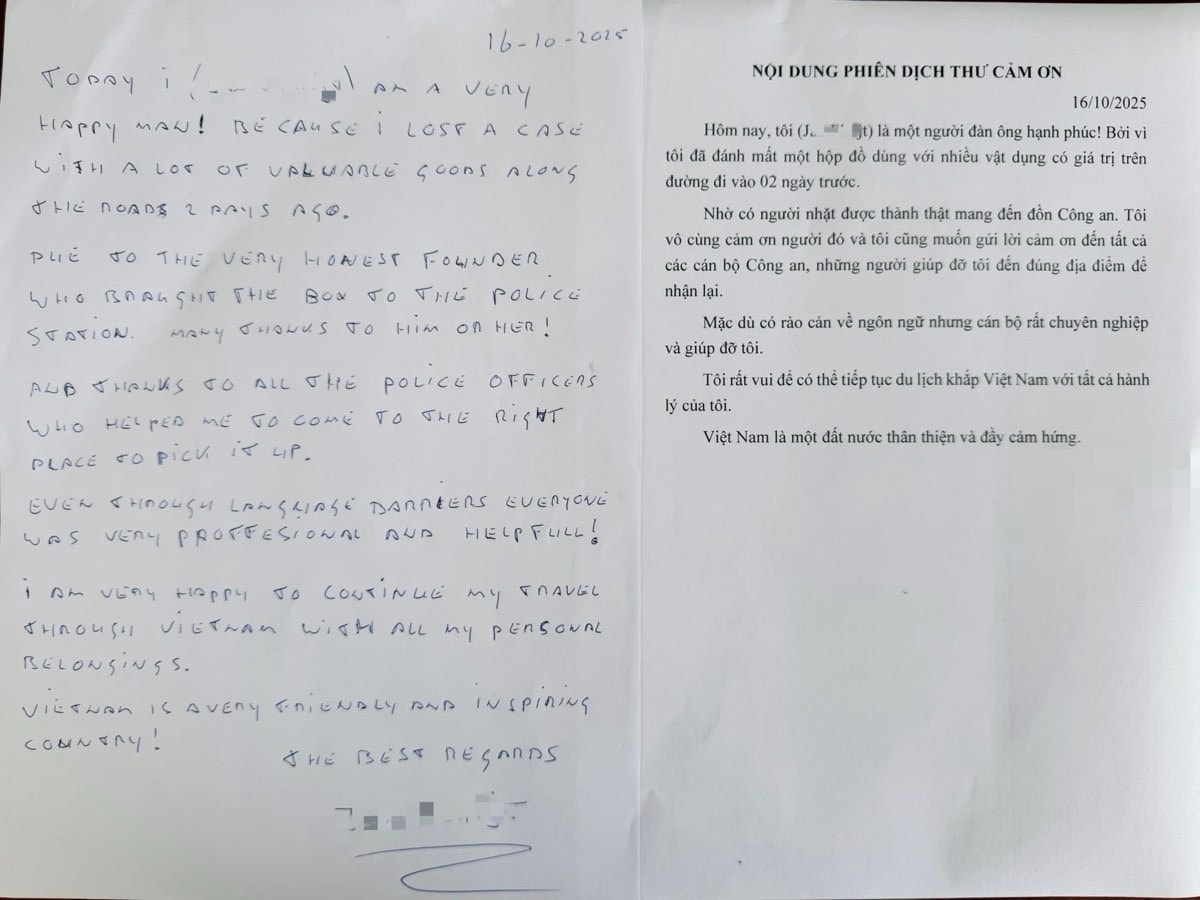 16-10-2025
TODAY i ( ) AM A VERY
HAPPY MAN! BECAUSE i LOST A CASE
WiTH A LOT OF VALUABLE GOODS ALONG
THE ROADS 2 DAYS AGO.
DUE TO THE VERY HONEST FOUNDER
WHO BRAUGHT THE BOX TO THE POLICE
STATION. MANY THANKS TO HIM OR HER!
AND THANKS TO ALL THE POLICE OFFICERS
WHO HELPED ME TO COME TO THE RIGHT
PLACE TO PICK iT UP.
EVEN THROUGH LANGUAGE BARRIERS EVERYONE
WAS VERY PROFFESIONAL AND HELPFULL!
i AM VERY HAPPY TO CONTINUE MY TRAVEL
THROUGH VIETNAM WITH ALL MY PERSONAL
BELONGiNGS.
ViETNAM IS A VERY FRIENDLY AND INSPIRING
COUNTRY!
THE BEST REGARDS
NỘI DUNG PHIÊN DỊCH THƯ CẢM ƠN
16/10/2025
Hôm nay, tôi (J. jt) là một người đàn ông hạnh phúc! Bởi vì
tôi đã đánh mất một hộp đồ dùng với nhiều vật dụng có giá trị trên
đường đi vào 02 ngày trước.
Nhờ có người nhặt được thành thật mang đến đồn Công an. Tôi
vô cùng cảm ơn người đó và tôi cũng muốn gửi lời cảm ơn đến tất cả
các cán bộ Công an, những người giúp đỡ tôi đến đúng địa điểm để
nhận lại.
Mặc dù có rào cản về ngôn ngữ nhưng cán bộ rất chuyên nghiệp
và giúp đỡ tôi.
Tôi rất vui để có thể tiếp tục du lịch khắp Việt Nam với tất cả hành
lý của tôi.
Việt Nam là một đất nước thân thiện và đầy cảm hứng.